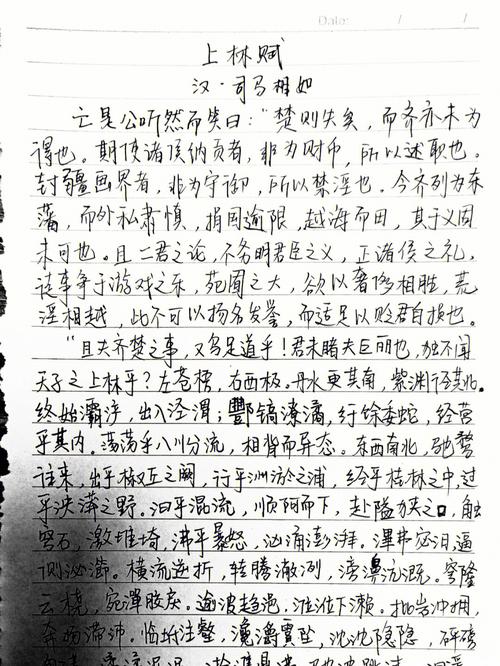 Date: / /
上林赋
汉·司马相如
亡是公听然而笑曰:“楚则失矣,而齐亦未为
得也。期使诸侯纳贡者,非为财币,所以述职也。
封疆画界者,非为守御,所以禁淫也。今齐列为东
藩,而外私肃慎,捐国逾限,越海而田,其于义固
未可也。且二君之论,不务明君臣之义,正诸侯之礼,
徒事争于游戏之乐,苑囿之大,欲以奢侈相胜,荒
淫相越,此不可以扬名发誉,而适足以贬君自损也。
“且夫齐楚之事,又乌足道乎!君未睹夫巨丽也,独不闻
天子之上林乎?左苍梧,右西极。丹水更其南,紫渊径其北。
终始灞浐,出入泾渭;酆镐潦潏,纡徐委蛇,经营
乎其内。荡荡乎八川分流,相背而异态。东西南北,驰骛
往来,出乎椒丘之阙,行乎洲淤之浦,经乎桂林之中,过
乎泱漭之野。汩乎混流,顺阿而下,赴隘狭之口,触
穹石,激堆埼,沸乎暴怒,汹涌澎湃。滭弗宓汩,逼
侧泌瀄。横流逆折,转腾潎洌,滂濞沆溉。穹隆
云桡,宛潬胶戾。逾波趋浥,涖涖下濑。批岩冲拥,
奔扬滞沛。临坻注壑,瀺灂霣坠,沈沈隐隐,砰磅